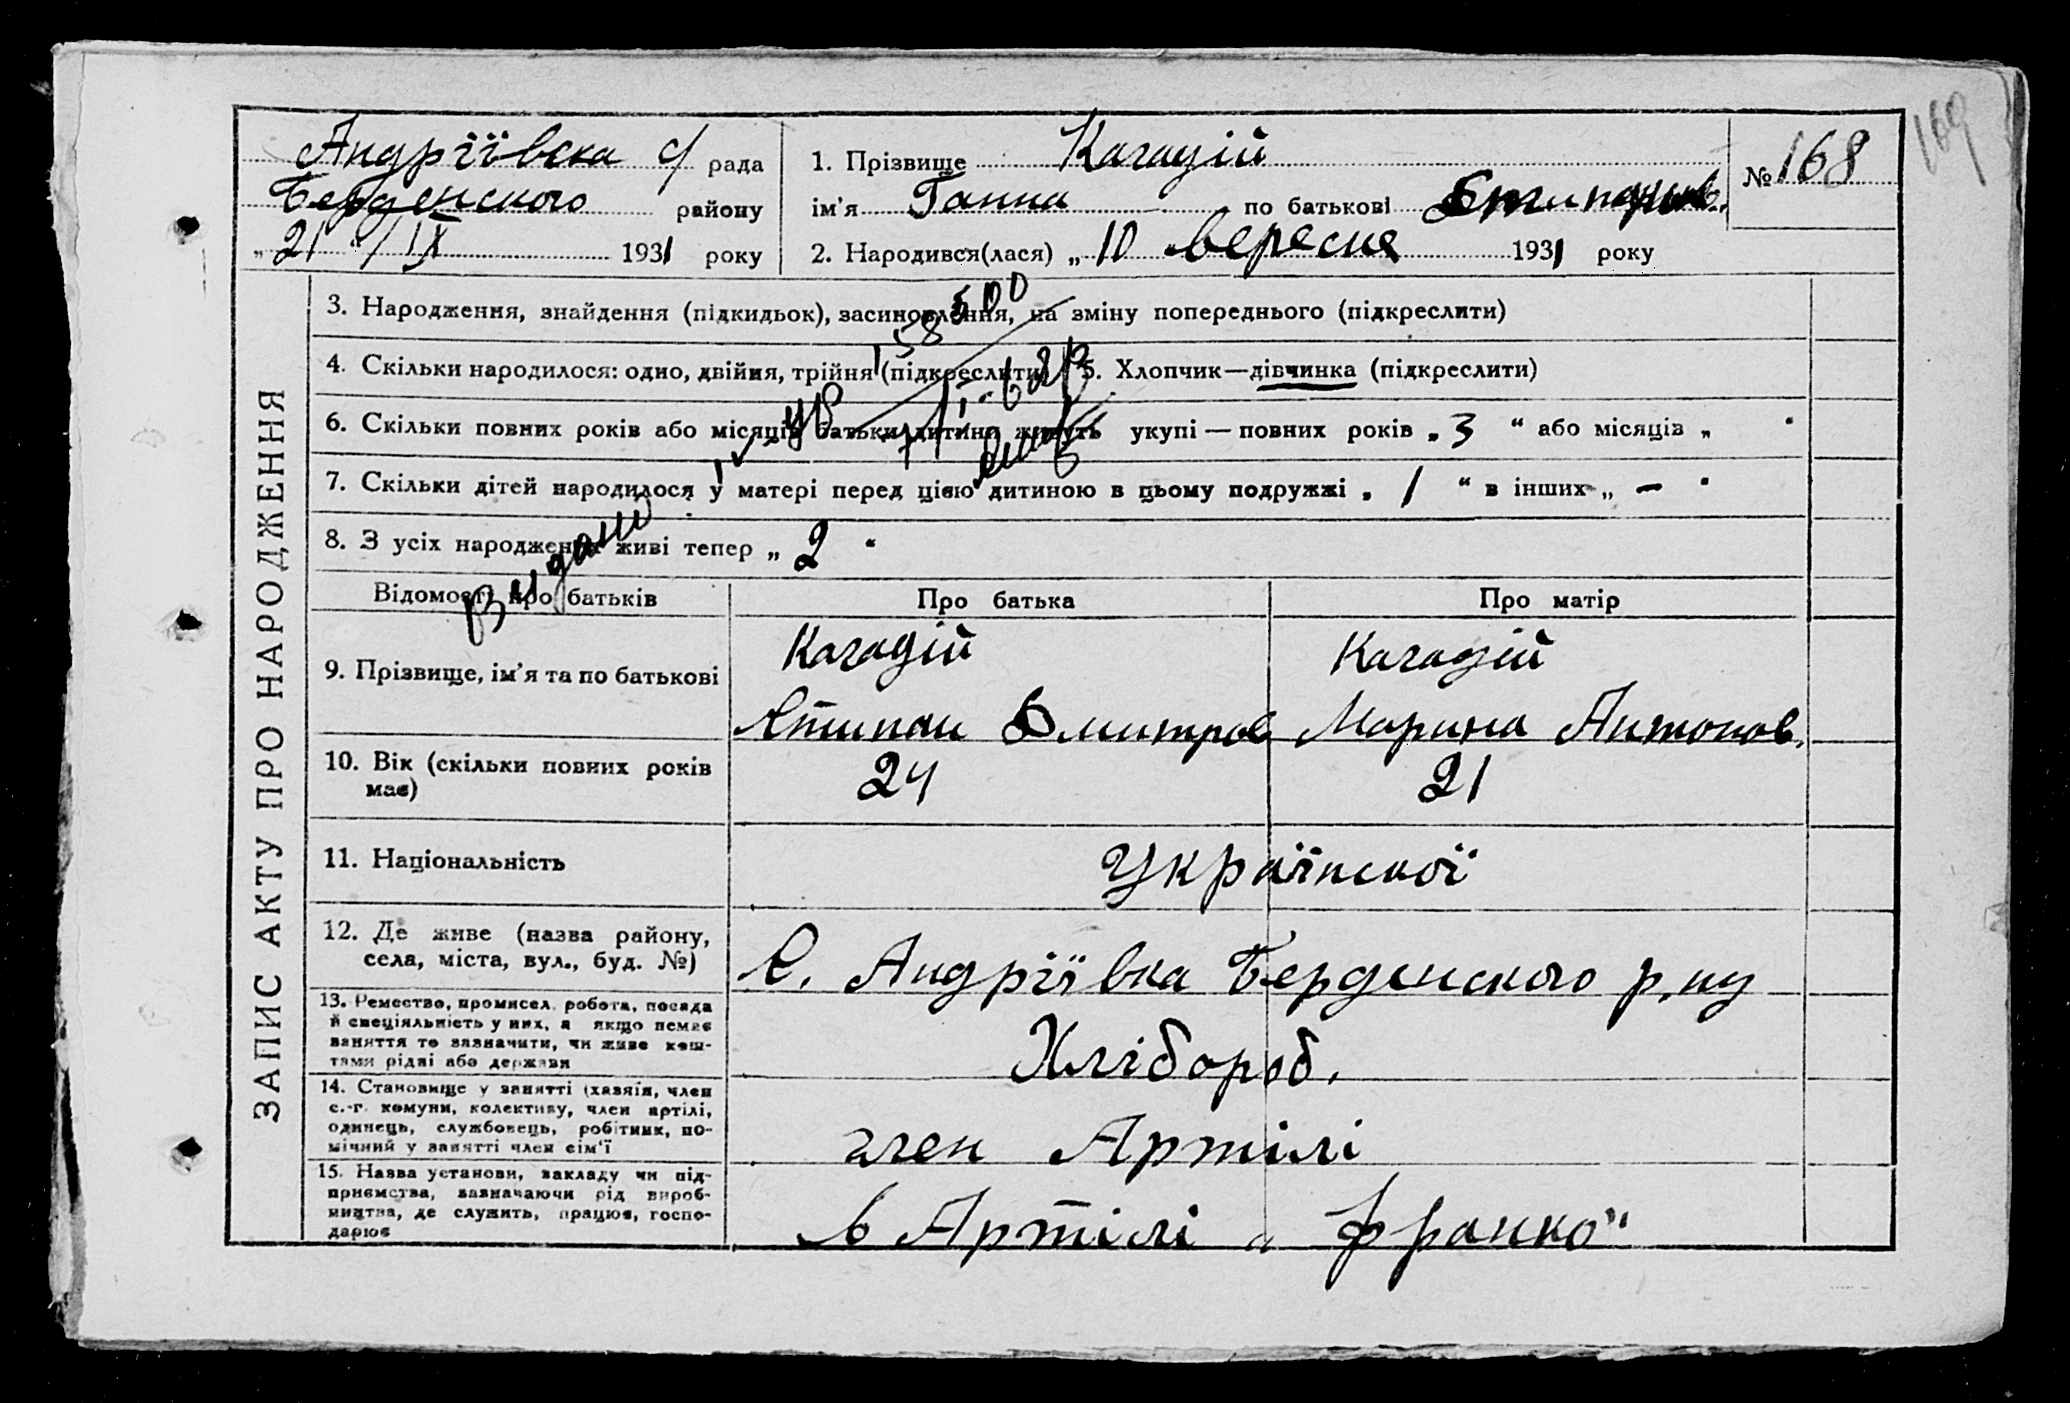 169
Андріївска с/ рада
Берденского району
„ 21 “ / IX 1931 року
1. Прізвище Кагадій
ім'я Ганна по батькові
2. Народився(лася) „ 10 вересня 1931 року
№ 168
ЗАПИС АКТУ ПРО НАРОДЖЕННЯ
3. Народження, знайдення (підкидьок), засиновлення, на зміну попереднього (підкреслити)
4. Скільки народилося: одно, двійня, трійня (підкреслити) 5. Хлопчик—дівчинка (підкреслити)
6. Скільки повних років або місяців батьки дитини живуть укупі — повних років „ 3 “ або місяців „ “
7. Скільки дітей народилося у матері перед цією дитиною в цьому подружжі „ 1 “ в інших „ — “
8. З усіх народжених живі тепер „ 2 “
Видано
Відомості про батьків Про батька Про матір
9. Прізвище, ім'я та по батькові
Кагадій Кагадій
Дмитров Марина Антонов.
10. Вік (скільки повних років
має)
24 21
11. Національність Українскої
12. Де живе (назва району,
села, міста, вул., буд. №)
С. Андріївка Берденского р.ну
13. Ремество, промисел, робота, посада
й спеціяльність у них, а якщо немає
заняття то зазначити, чи живе кош-
тами рідні або держави
Хлібороб.
14. Становище у занятті (хазяїн, член
с.-г. комуни, колективу, член артілі,
одинець, службовець, робітник, по-
мічний у занятті член сім'ї
член Артілі
15. Назва установи, закладу чи під-
приємства, зазначаючи рід вироб-
ництва, де служить, працює, госпо-
дарює
в Артілі „ Франко“